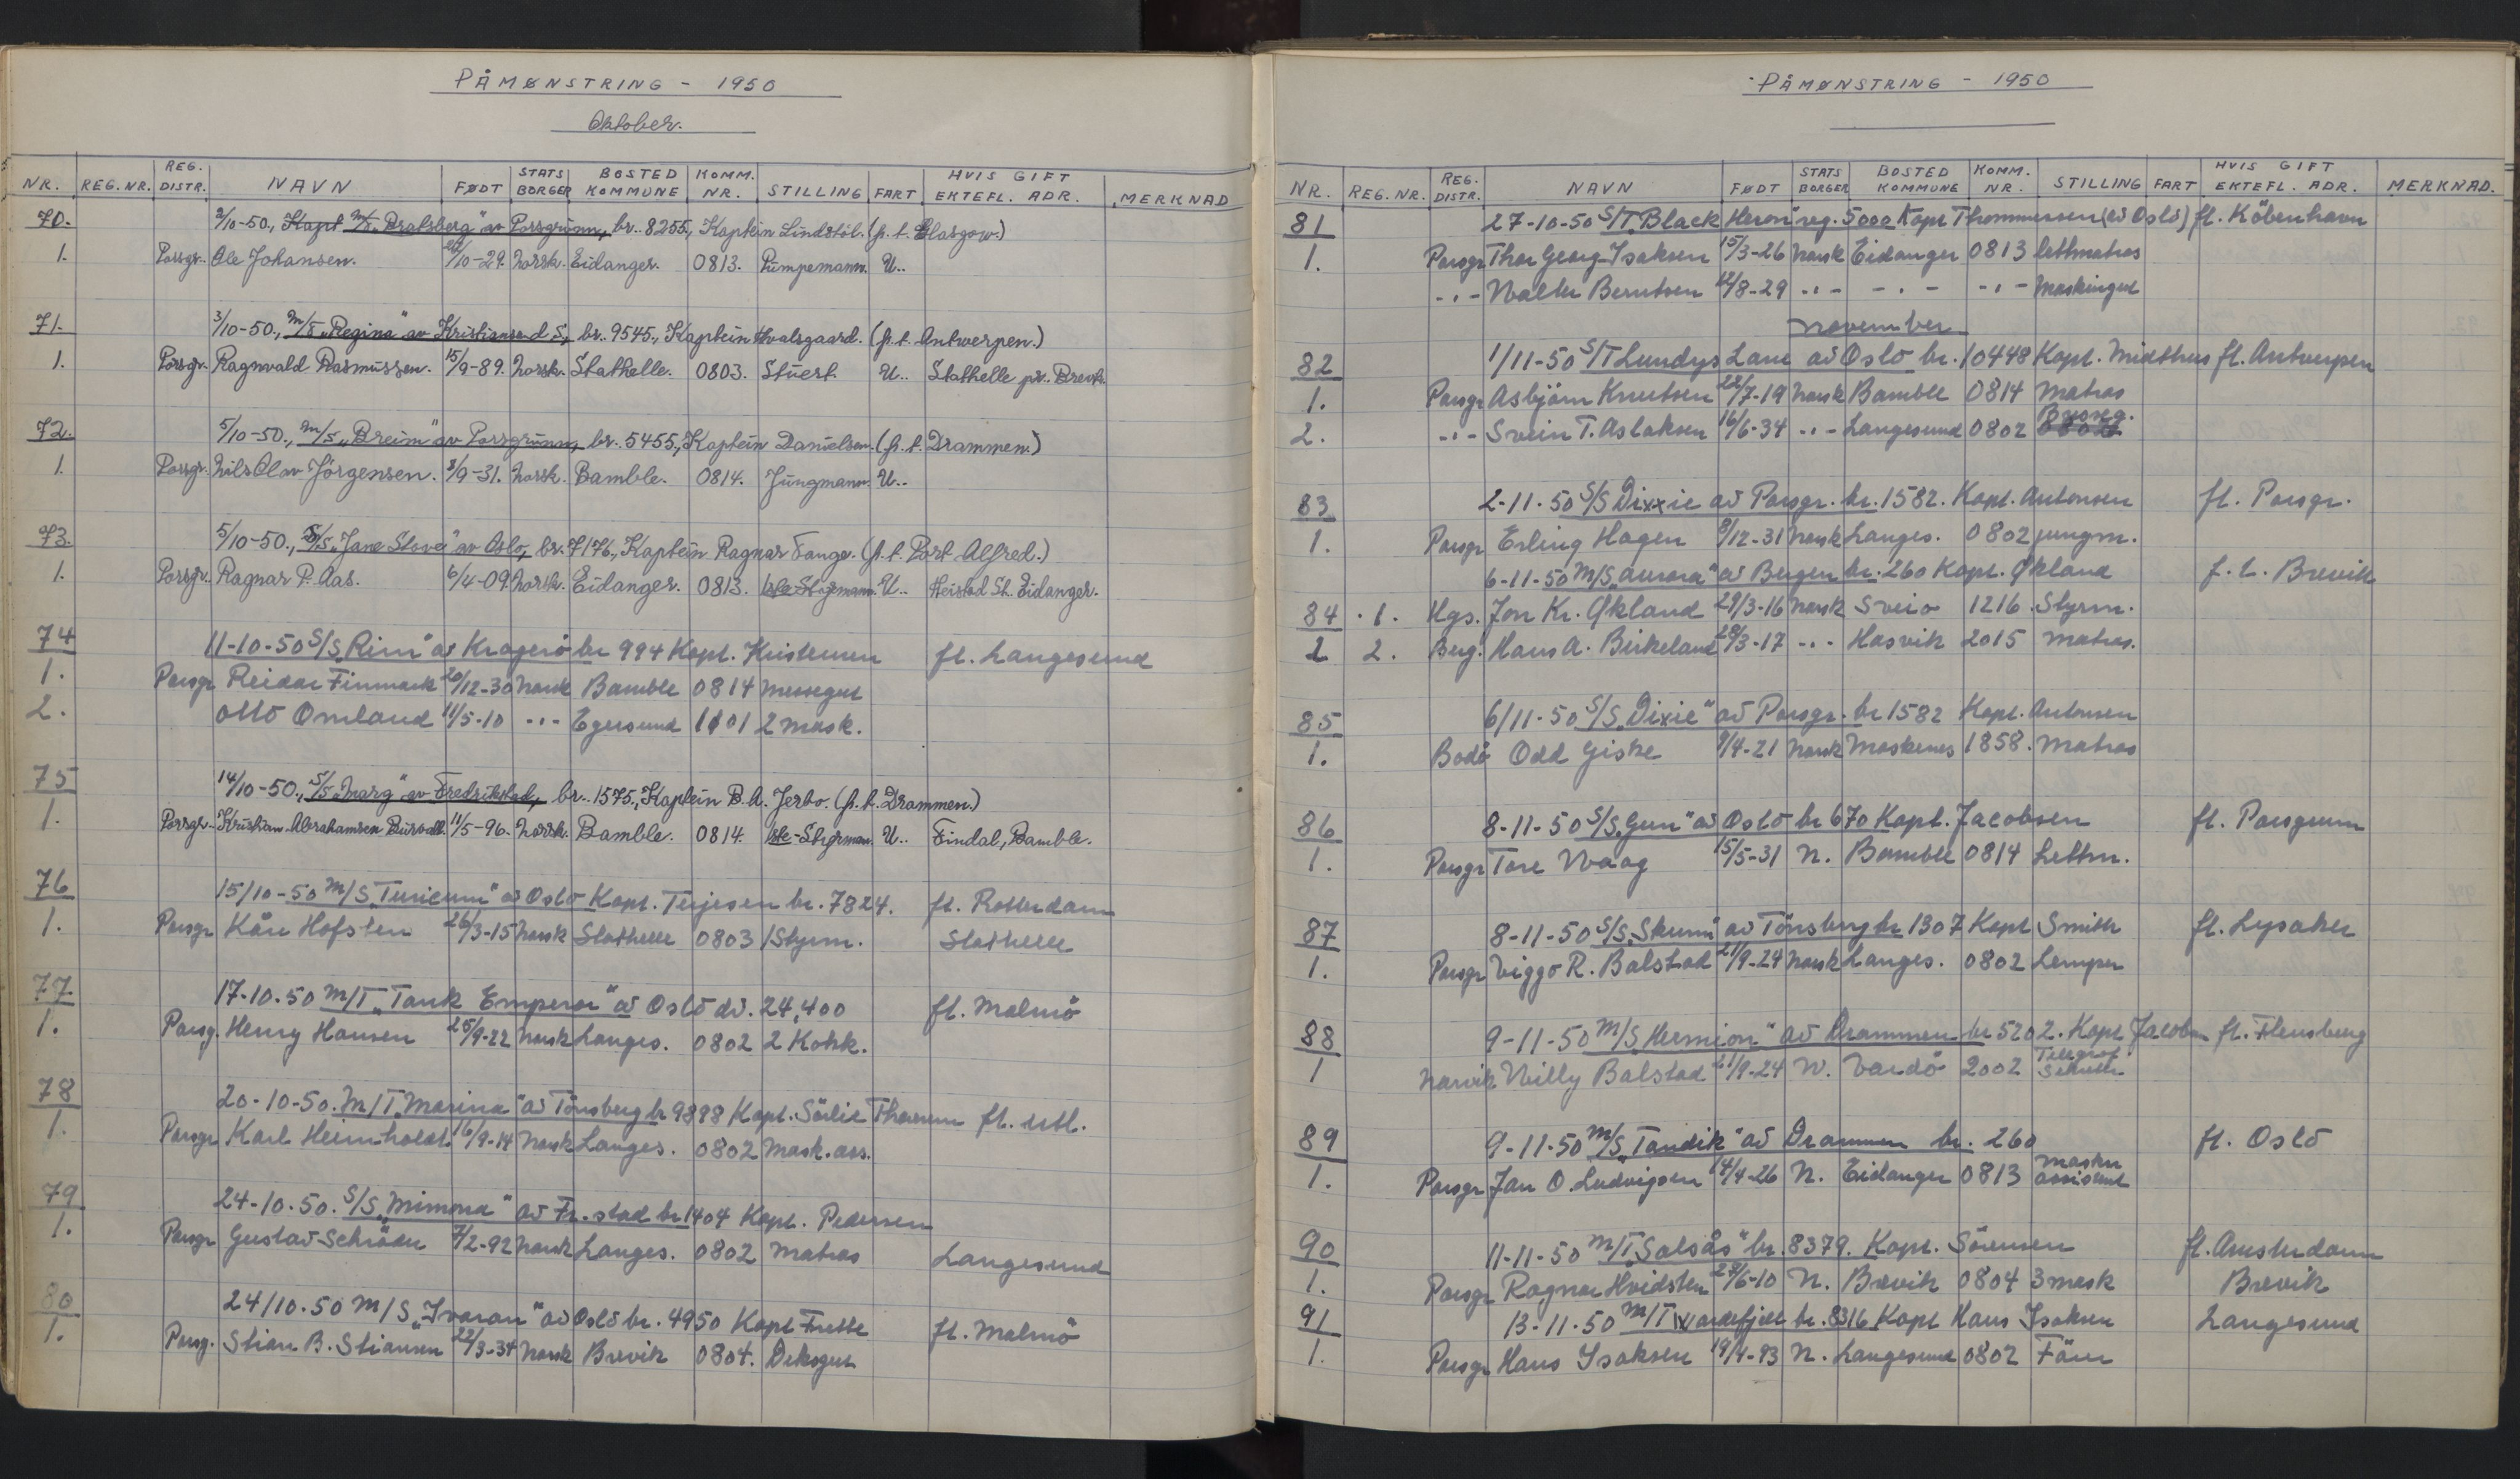 PÅMØNSTRING - 1950
Oktober.
NR. REG. NR. REG. DISTR. NAVN FØDT STATS BORGER BOSTED KOMMUNE KOMM. NR. STILLING FART HVIS GIFT EKTEFL. ADR. MERKNAD
70. 2/10-50., Kapt M/S "Bratsberg" av Porsgrunn, br. 8255, Kaptein Lindstöl. (p.t. Glasgow.)
1. Porsgr. Ole Johansen. /10-29. Norsk. Eidanger. 0813. Pumpemann. U..
71. 3/10-50., M/S "Regina" av Kristiansand S, br. 9545., Kaptein Hvalsgaard. (p.t. Antwerpen.)
1. Porsgr. Ragnvald Rasmussen. 15/9-89. Norsk. Stathelle. 0803. Stuert. U.. Stathelle pr. Brevik.
72. 5/10-50., M/S "Breim" av Porsgrunn, br. 5455., Kaptein Danielsen. (p.t. Drammen.)
1. Porsgr. Nils Olav Jörgensen. /9-31. Norsk. Bamble. 0814. Jungmann. U..
73. 5/10-50., S/S "Jane Stove" av Oslo, br. 7176., Kaptein Ragnar Fange. (p.t. Port Alfred.)
1. Porsgr. Ragnar P. Aas. 6/4-09. Norsk. Eidanger. 0813. 1ste-Styrmann. U.. Heistad St. Eidanger.
74 11-10-50 S/S "Rim" av Kragerö br 994 Kapt. Kristensen ft. Langesund
1. Porsgr Reidar Finmark 20/12-30 Norsk Bamble 0814 Messegut
2. Otto Omland 11/5-10 -"- Egersund 1101 2 mask.
75 14/10-50., S/S "Marg" av Fredrikstad, br. 1575., Kaptein B.A. Jerbo. (p.t. Drammen.)
1. Porsgr. Kristian Abrahamsen 11/5-96. Norsk. Bamble. 0814. 1ste-Styrman. U.. Findal, Bamble.
76 15/10-50 M/S "Turicum" av Oslo Kapt. Terjesen br. 7824. ft. Rotterdam
1. Porsgr Kåre Hofsten 26/3-15 Norsk Stathelle 0803 1 Styrm. Stathelle
77. 17-10-50 M/T "Tank Emperor" av Oslo dv. 24,400 ft. Malmö
1. Porsg. Henry Hansen 25/9-22 Norsk Langes. 0802 2 Kokk.
78 20-10-50. M/T "Marina" av Tönsberg br 9898 Kapt. Sörlie ft. utl.
1. Porsgr Karl Heimholdt 16/9-14 Norsk Langes. 0802 Mask. ass.
79 24-10-50. S/S "Mimona" av Fr.stad br 1404 Kapt. Pedersen
1. Porsgr Gustav Schröder 7/2-92 Norsk Langes. 0802 Matros Langesund
80 24/10-50 M/S "Ivaran" av Oslo br. 4950 Kapt Frette ft. Malmö
1. Porsg. Stian B. Stiansen 22/3-34 Norsk Brevik 0804. Deksgut
PÅMØNSTRING - 1950
NR. REG. NR. REG. DISTR. NAVN FØDT STATS BORGER BOSTED KOMMUNE KOMM. NR. STILLING FART HVIS GIFT EKTEFL. ADR. MERKNAD.
81 27-10-50 S/T "Black Heron" reg. 5000 Kapt Thommessen (av Oslo) ft. Köbenhavn
1. Porsgr Thor Georg Isaksen 15/3-26 Norsk Eidanger 0813 lettmatros
-"- Walter Berntsen 12/8-29 -"- -"- -"- Maskingut
November
82 1/11-50 S/T Lundys Lane av Oslo br. 10448 Kapt. Midthus ft. Antwerpen
1. Porsgr Asbjörn Knutsen 22/7-19 Norsk Bamble 0814 Matros
2. -"- Svein T. Aslaksen 16/6-34 -"- Langesund 0802 Byssg.
83 2-11-50 S/S Dixxie av Porsgr. br. 1582. Kapt. Antonsen ft. Porsgr.
1. Porsgr Erling Hagen 8/12-31 Norsk Langes. 0802 jungm.
6-11-50 M/S "Aurora" av Bergen br. 260 Kapt. Økland f.t. Brevik
84 1. Hgs. Jon Kr. Økland 29/3-16 Norsk Sveio 1216 Styrm.
2 2. Berg. Hans A. Birkeland 28/3-17 -"- Hasvik 2015 Matros.
85 6/11-50 S/S "Dixie" av Porsgr. br 1582 Kapt. Antonsen
1. Bodö Odd Giske 9/4-21 Norsk Moskenes 1858. Matros
86 8-11-50 S/S "Gun" av Oslo br 670 Kapt. Jacobsen ft. Porsgrunn
1. Porsgr Tore Waag 15/5-31 N. Bamble 0814 Lettm.
87 8-11-50 S/S "Skum" av Tönsberg br 1307 Kapt Smith ft. Lysaker
1. Porsgr Viggo R. Balstad 21/9-24 Norsk Langes. 0802 Lemper
88 9-11-50 M/S "Hermion" av Drammen br 5202. Kapt Jacobsen ft. Flensberg
1 Narvik Willy Balstad /9-24 N. Vardö 2002 Telegraf
89 9-11-50 M/S "Tandik" av Drammen br. 260 ft. Oslo
1. Porsgr Jan O. Ludvigsen 14/4-26 N. Eidanger 0813 Maskin assistent
90 11-11-50 M/T "Solsås" br. 8379. Kapt. Sörensen ft. Amsterdam
1. Porsgr Ragnar Hvidsten 28/6-10 N. Brevik 0804 3 mask Brevik
91 13-11-50 M/T Vardefjell br. 8316 Kapt Hans Isaksen Langesund
1. Porsgr Hans Isaksen 19/4-93 N. Langesund 0802 Förer